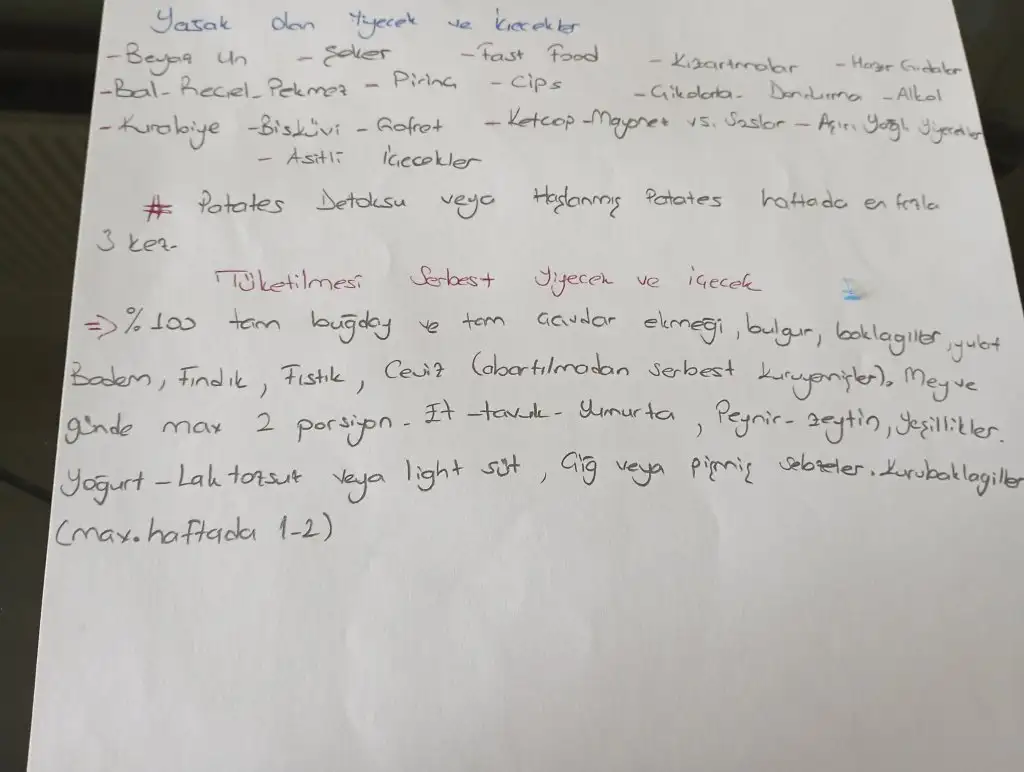 Yasak olan Yiyecek ve İçecekler
- Beyaz Un - Şeker - Fast Food - Kızartmalar - Hazır Gıdalar
- Bal - Reçel - Pekmez - Pirinç - Cips - Çikolata - Dondurma - Alkol
- Kurabiye - Bisküvi - Gofret - Ketçap - Mayonez vs. Soslar - Aşırı Yağlı Yiyecekler
- Asitli İçecekler
# Patates Detoksu veya Haşlanmış Patates haftada en fazla
3 kez-
Tüketilmesi Serbest Yiyecek ve içecek
=> %100 tam buğday ve tam çavdar ekmeği, bulgur, baklagiller, yulaf
Badem, Fındık, Fıstık, Ceviz (abartılmadan serbest kuruyemişler). Meyve
günde max 2 porsiyon - Et - tavuk - Yumurta, Peynir - zeytin, yeşillikler.
Yoğurt - Laktozsüt veya light süt, Çiğ veya pişmiş sebzeler. Kurubaklagiller
(max. haftada 1-2)